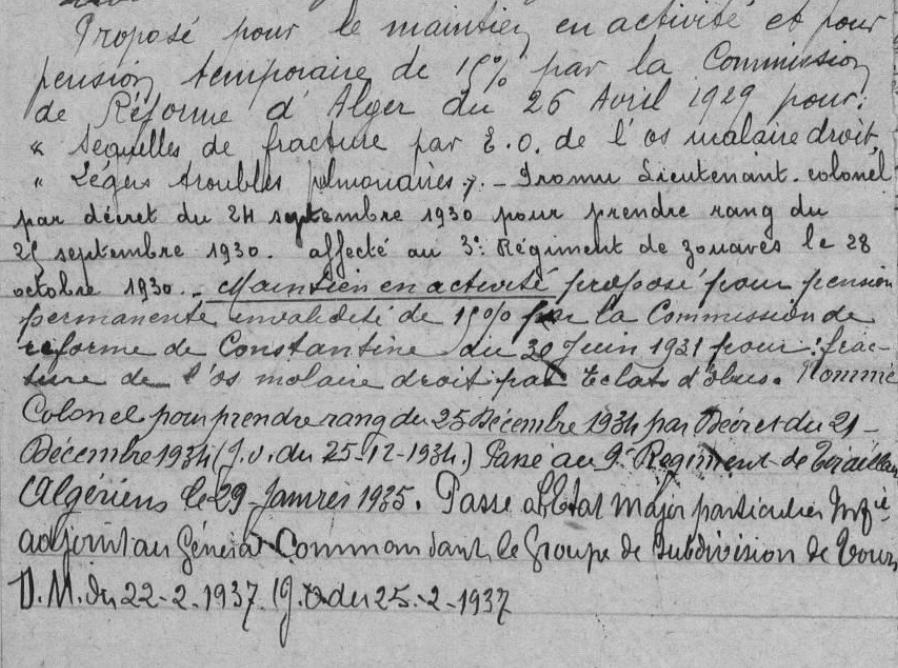 Proposé pour le maintien en activité et pour
pension temporaire de 15% par la Commission
de Réforme d'Alger du 26 Avril 1929 pour:
" Sequelles de fracture par E.O. de l'os malaire droit,
" Légers troubles pulmonaires". - Promu Lieutenant-colonel
par décret du 24 septembre 1930 pour prendre rang du
25 septembre 1930. affecté au 3e Régiment de zouaves le 28
octobre 1930. - Maintien en activité proposé pour pension
permanente invalidité de 15% par la Commission de
reforme de Constantine du 30 Juin 1931 pour: frac-
ture de l'os molaire droit par Eclats d'obus. Nommé
Colonel pour prendre rang du 25 Décembre 1934 par Décret du 21-
Décembre 1934 (J.O. du 25-12-1934.) Passé au 9e Regiment de Tirailleurs
Algériens le 29 Janvier 1935. Passe à l'Etat Major particulier Infie
adjoint au Général Commandant le Groupe de Subdivision de Tours
D.M. du 22-2-1937. (J.O du 25-2-1937